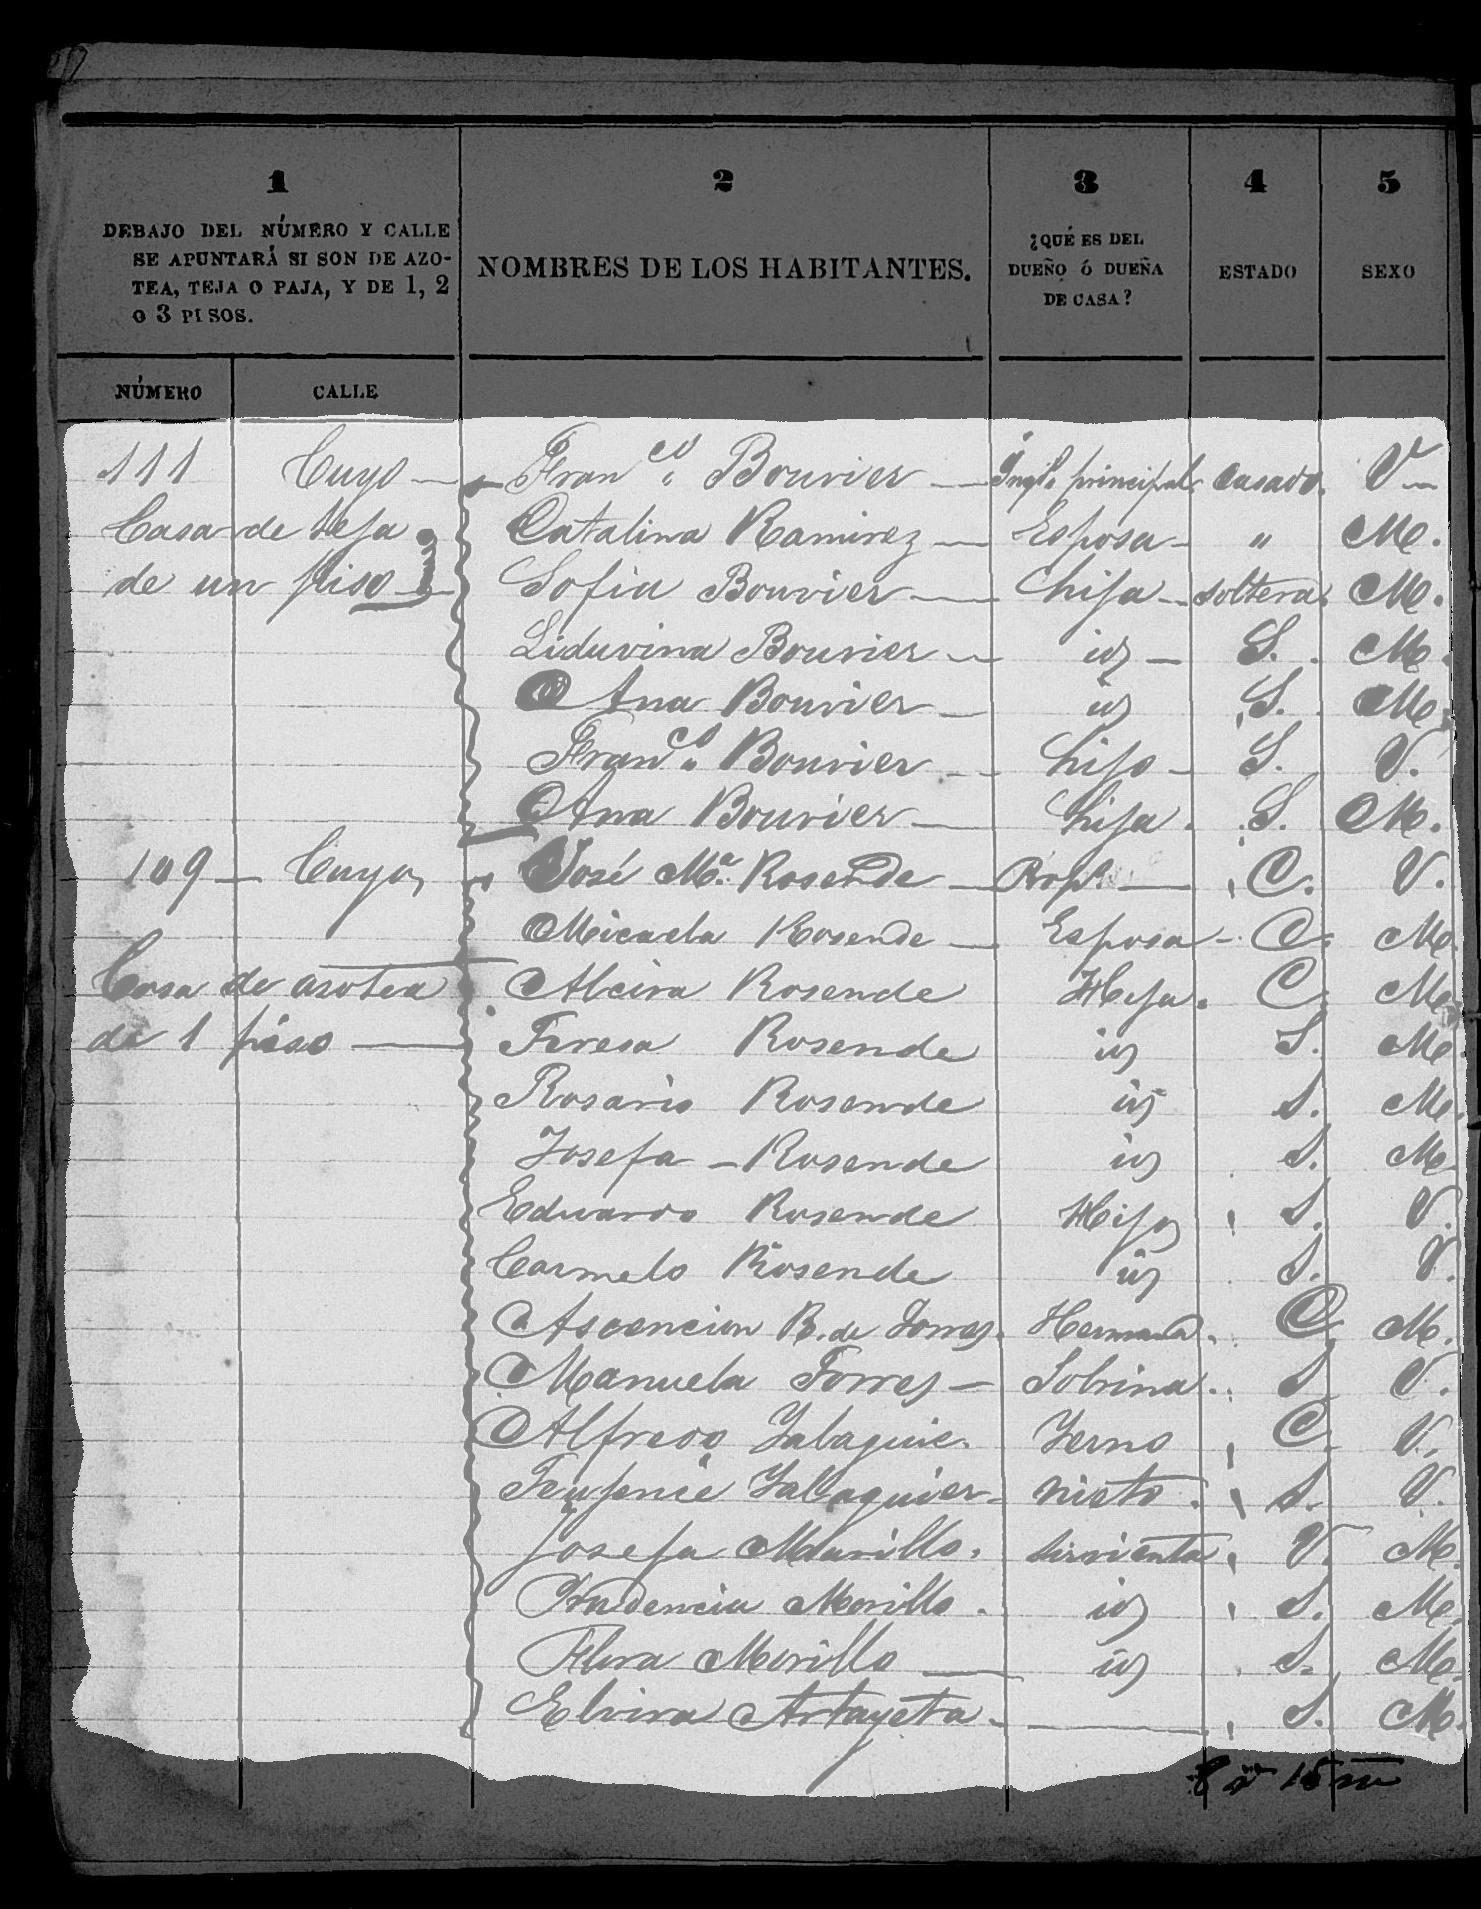 1
2
3
4
5
DEBAJO DEL NÚMERO Y CALLE
SE APUNTARÁ SI SON DE AZO-
TEA, TEJA O PAJA, Y DE 1, 2
O 3 PISOS.
NOMBRES DE LOS HABITANTES.
¿QUÉ ES DEL
DUEÑO Ó DUEÑA
DE CASA?
ESTADO
SEXO
NÚMERO CALLE
111 Cuyo Franco. Bouvier Inqlo principal casado. V
Casa de teja Catalina Ramirez Esposa " M.
de un piso Sofia Bouvier hija soltera. M.
Liduvina Bouvier id S. M.
Ana Bouvier id S. M.
Franco. Bouvier hijo S. V.
Ana Bouvier hija. S. M.
109 Cuyo José Ma. Rosende Propo C. V.
Micaela Rosende Esposa C. M
Casa de azotea Alcira Rosende Hija. C. M
de 1 piso Teresa Rosende id S. M
Rosario Rosende id S. M.
Josefa Rosende id S. M
Eduardo Rosende Hijo S. V.
Carmelo Rosende id S. V.
Ascencion R. de Torres. Hermana. C. M.
Manuela Torres Sobrina. S V.
Alfredo Jalaguie. Yerno C. V.
Jalaguier nieto. S. V.
Josefa Murillo. sirvienta. V. M.
Prudencia Morillo. id S. M.
Flora Morillo id S. M.
Elvira Artayeta S. M.
8 v 15 m